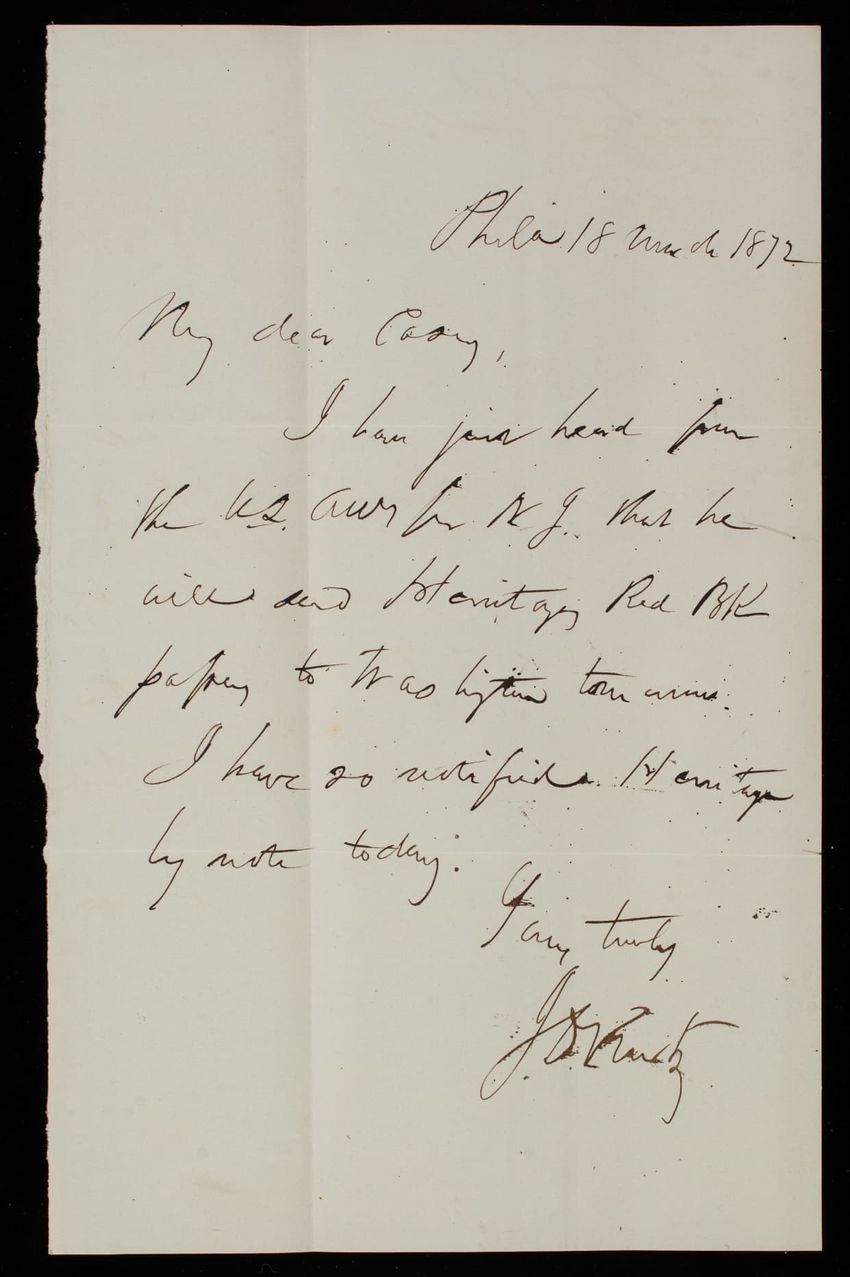 Phila 18 March 1872
My dear Casey,
I have just heard from
the U.S. Atty for N J. that he
will send Heritages Red BK
papers to Washington tomorrow.
I have so notified Heritage
by note today.
Yours truly
J. D. Kurtz